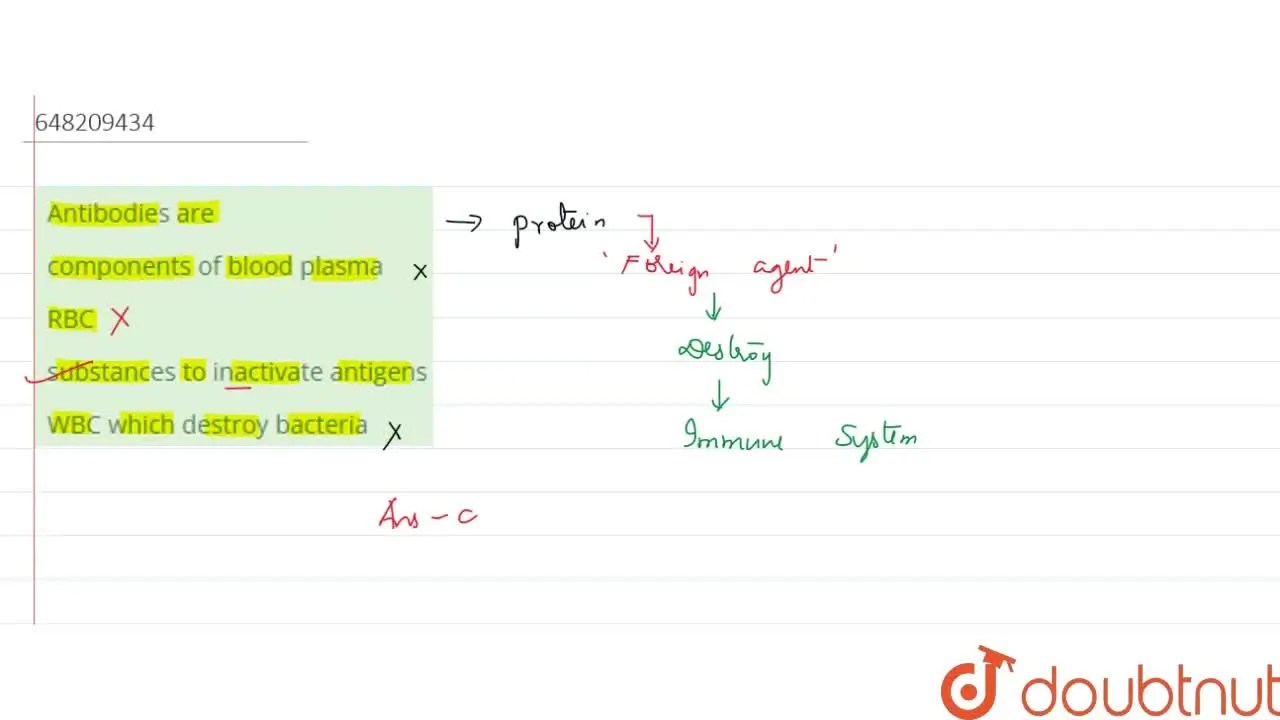 648209434
Antibodies are
→ protein
components of blood plasma x
'Foreign agent'
RBC X
Destroy
substances to inactivate antigens
WBC which destroy bacteria X
Immune System
Ans - C
doubtnut